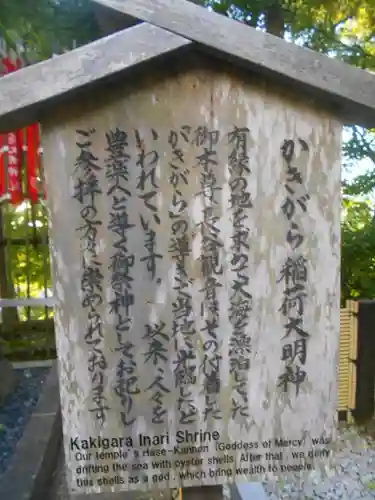 かきがら稲荷大明神
有縁の地を求めて大海を漂泊した
御本尊、長谷観音は、その付着した
「かきがら」の導きご当地に出臨したと
いわれています。 以来、人々を
豊楽へと導く御祭神としてお祀りし
ご参拝の方々に崇められております
Kakigara Inari Shrine
Our temple's Hase-Kannon (Goddess of Mercy) was
drifting the sea with oyster shells. After that, we deify
this shells as a god, which bring wealth to people.